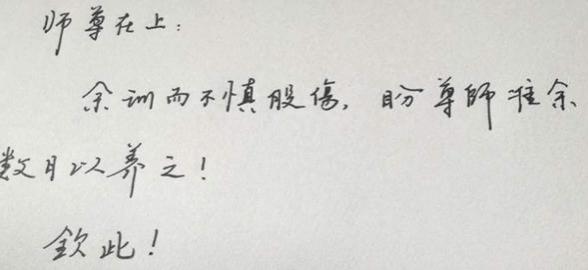 师尊在上：
余训而不慎股伤，盼尊師准余
数日以养之！
欽此！